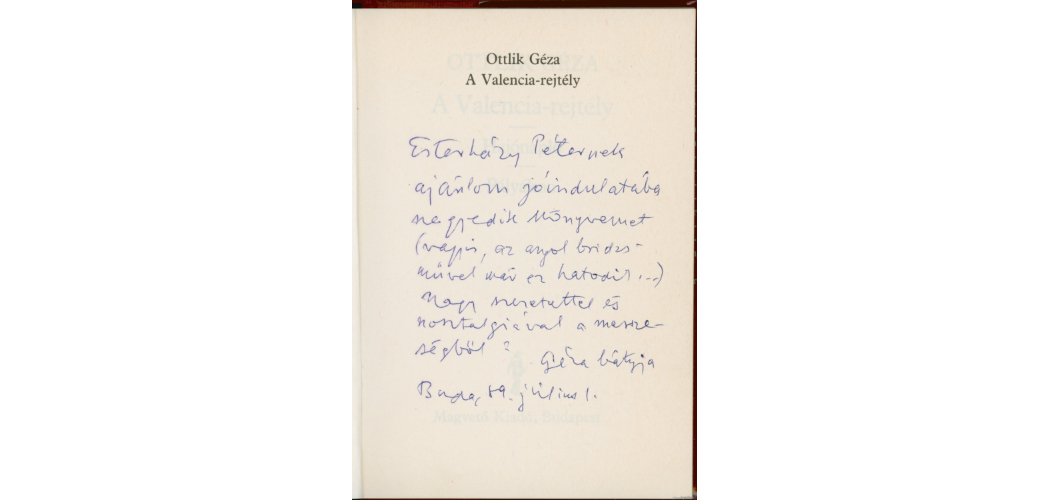 Ottlik Géza
A Valencia-rejtély
Esterházy Péternek
ajánlom jóindulatába
negyedik könyvemet
(vagyis, az angol bridzs-
művel már ez hatodik...)
Nagy szeretettel és
nosztalgiával a messze-
ségből :
Géza bátyja
Buda, 89. július 1.
OTTLIK GÉZA
A Valencia-rejtély
Magvető Kiadó, Budapest